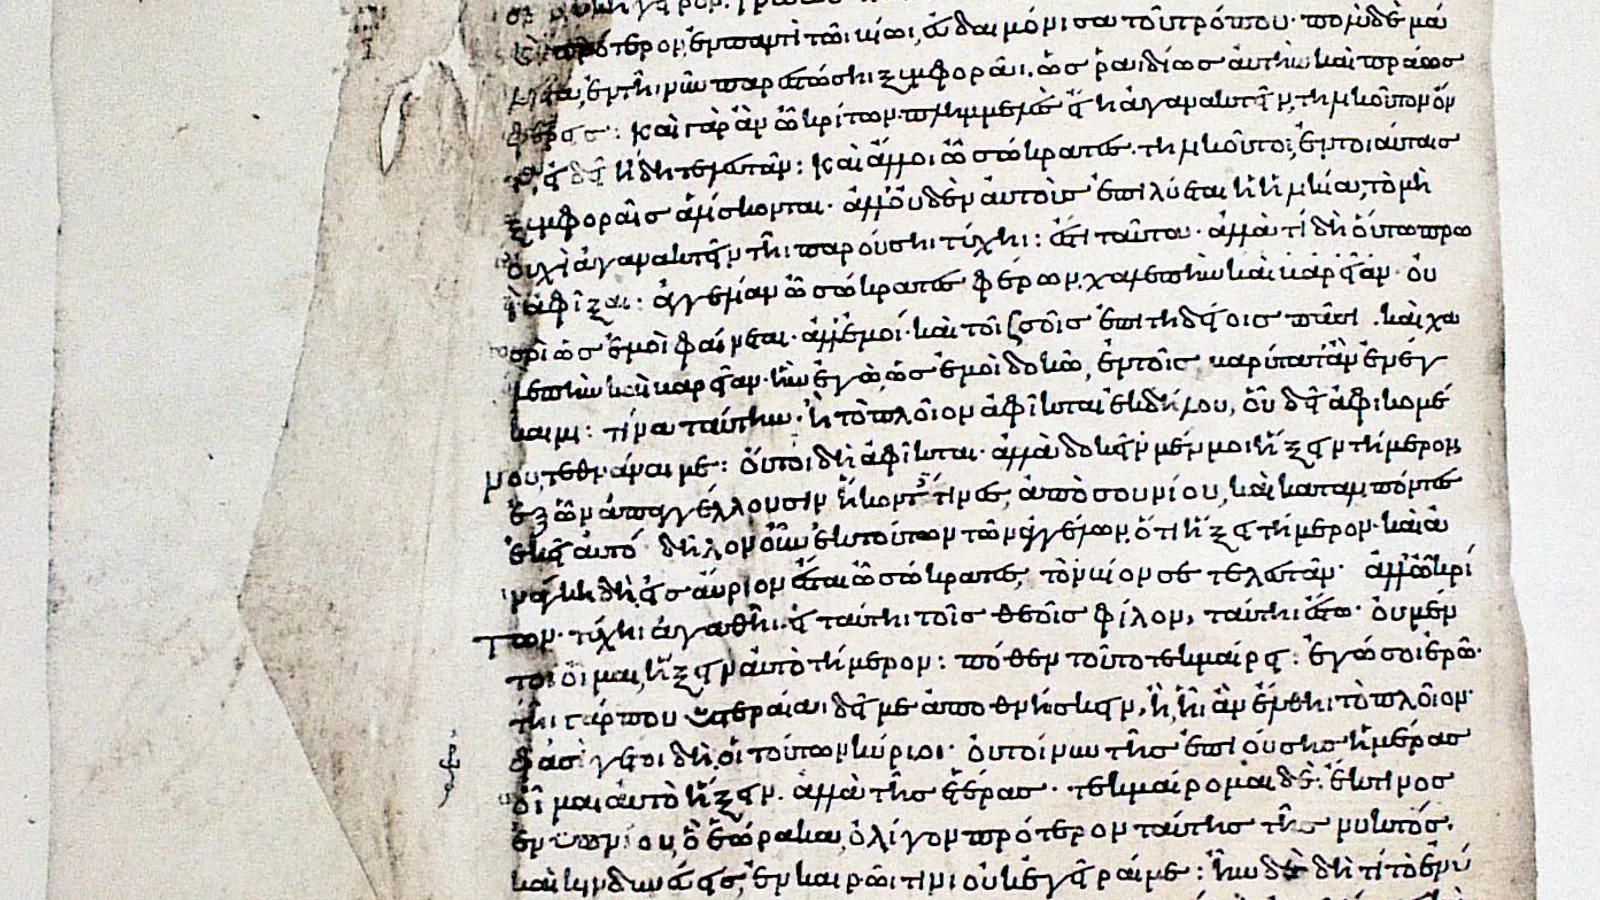 καὶ πρότερον ἐν παντὶ τῶι βίωι, εὐδαιμόνισα τοῦ τρόπου· πολὺ δὲ μά
λιστα, ἐν τῆι νῦν παρεστώσηι ξυμφορᾶι, ὡς ῥαιδίως αὐτὴν καὶ πράως
φέρεις : καὶ γὰρ ἂν ὦ κρίτων πλημμελὲς εἴη ἀγανακτεῖν, τηλικοῦτον ὄν
τα, εἰ δεῖ ἤδη τελευτᾶν : καὶ ἄλλοι ὦ σώκρατες· τηλικοῦτοι, ἐν τοιαύταις
ξυμφοραῖς ἁλίσκονται· ἀλλ' οὐδὲν αὐτοὺς ἐπιλύεται ἡ ἡλικία, τὸ μὴ
οὐχὶ ἀγανακτεῖν τῆι παρούσηι τύχηι : ἔστι ταῦτα· ἀλλὰ τί δὴ οὕτω πρω
ῒ ἀφῖξαι : ἀγγελίαν ὦ σώκρατες φέρων, χαλεπὴν καὶ βαρεῖαν· οὐ
σοὶ ὡς ἐμοὶ φαίνεται· ἀλλ' ἐμοί· καὶ τοῖς σοῖς ἐπιτηδείοις πᾶσι . καὶ χα
λεπὴν καὶ βαρεῖαν· ἣν ἐγὼ, ὡς ἐμοὶ δοκῶ, ἐν τοῖς βαρύτατ' ἂν ἐνέγ
καιμι : τίνα ταύτην· ἢ τὸ πλοῖον ἀφῖκται ἐκ δήλου, οὗ δεῖ ἀφικομέ
νου, τεθνάναι με : οὔτοι δὴ ἀφῖκται· ἀλλὰ δοκεῖν μέν μοι ἥξειν τήμερον,
ἐξ ὧν ἀπαγγέλλουσιν ἥκοντές τινες, ἀπὸ σουνίου, καὶ καταλιπόντες
ἐκεῖ αὐτό δῆλον οὖν ἐκ τούτων τῶν ἀγγέλων, ὅτι ἥξει τήμερον· καὶ ἀ
νάγκη δὴ εἰς αὔριον ἔσται ὦ σώκρατες, τὸν βίον σε τελευτᾶν· ἀλλ' ὦ κρί
των· τύχηι ἀγαθῆι· εἰ ταύτηι τοῖς θεοῖς φίλον, ταύτηι ἔστω· οὐ μέν
τοι οἶμαι, ἥξειν αὐτὸ τήμερον : πόθεν τοῦτο τεκμαίρει : ἐγώ σοι ἐρῶ·
τῆι γάρ που ὑστεραίαι δεῖ με ἀποθνήσκειν, ἢ ἧι ἂν ἔλθηι τὸ πλοῖον·
φασί γέ τοι δὴ οἱ τούτων κύριοι· οὐ τοίνυν τῆς ἐπιούσης ἡμέρας
οἶμαι αὐτὸ ἥξειν· ἀλλὰ τῆς ἑτέρας· τεκμαίρομαι δὲ· ἔκ τινος
ἐνυπνίου, ὃ ἑώρακα, ὀλίγον πρότερον ταύτης τῆς νυκτός·
καὶ κινδυνεύεις, ἐν καιρῶι τινι οὐκ ἐγεῖραί με : ἦν δὲ δὴ τί τὸ ἐνύ